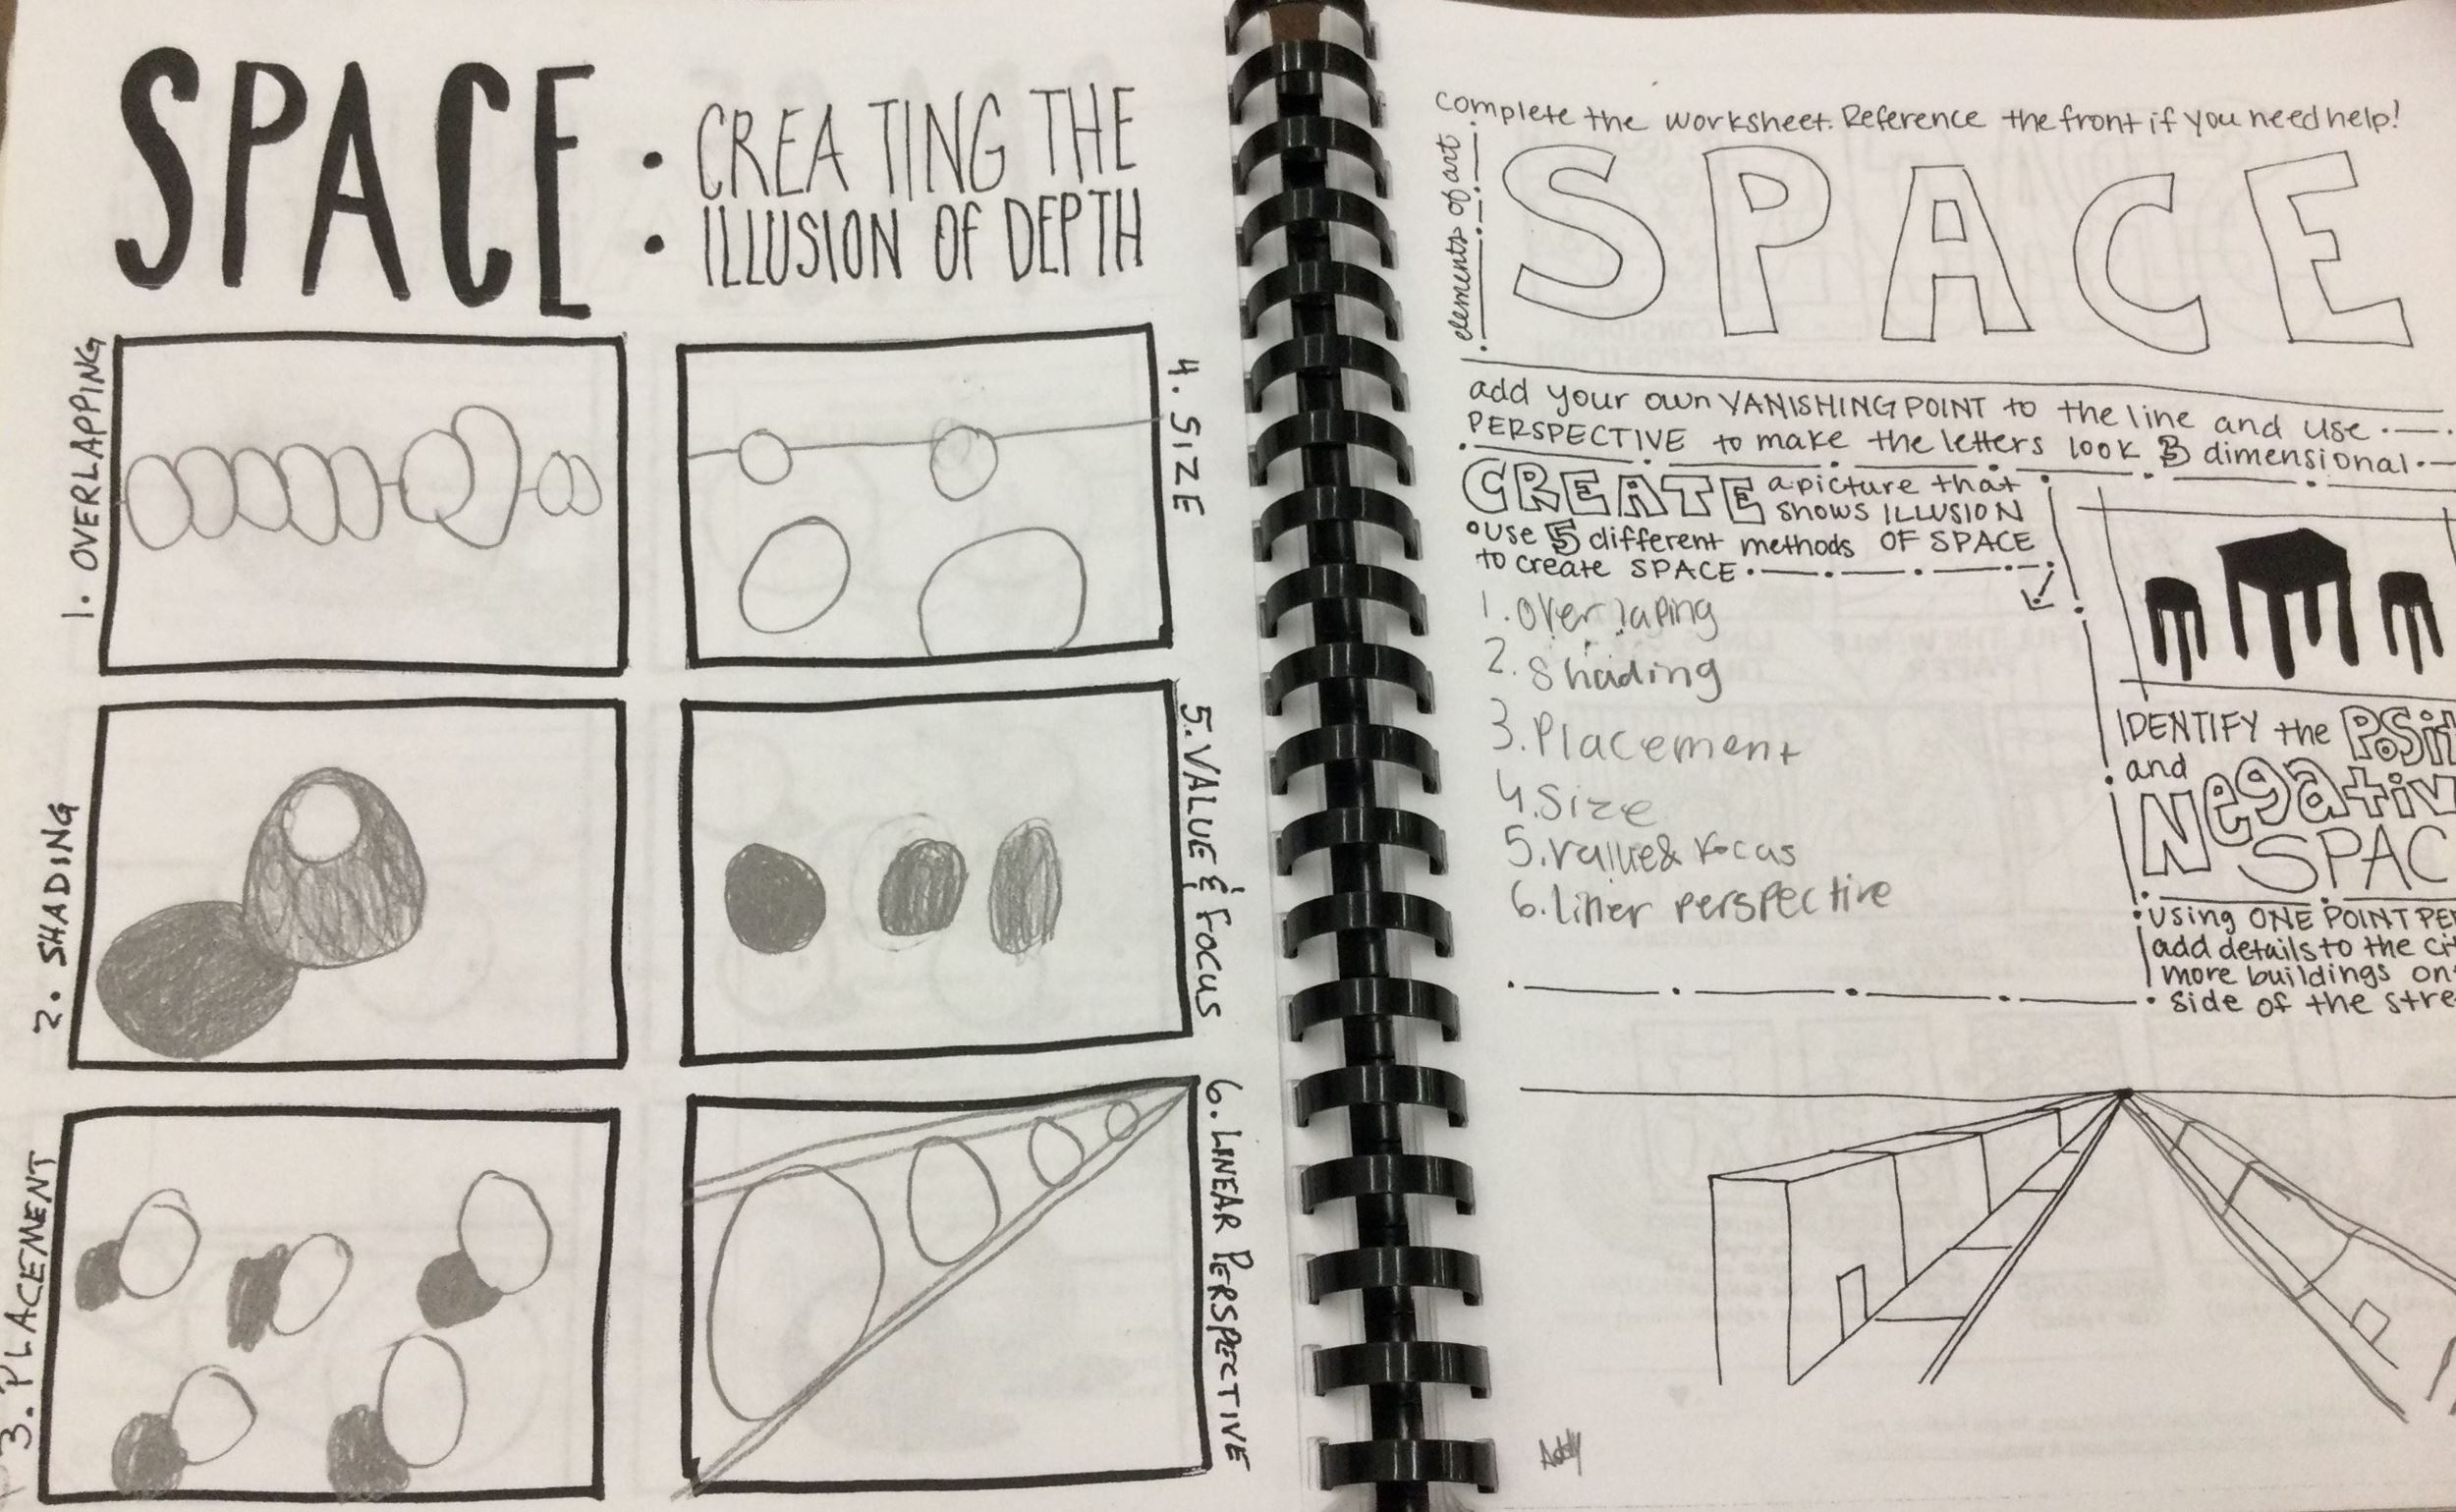 SPACE:
CREATING THE
ILLUSION OF DEPTH
1. OVERLAPPING
2. SHADING
3. PLACEMENT
4. SIZE
5. VALUE & FOCUS
6. LINEAR PERSPECTIVE
complete the worksheet. Reference the front if you need help!
elements of art
SPACE
add your own VANISHING POINT to the line and use
PERSPECTIVE to make the letters look 3 dimensional
CREATE a picture that
shows ILLUSION
OF SPACE
•use 5 different methods
to create SPACE
1. Overlaping
2. Shading
3. Placement
4. Size
5. value & focus
6. liner perspective
IDENTIFY the
and
SPAC
•using ONE POINT PE
add details to the ci
more buildings on
side of the stre
Addy